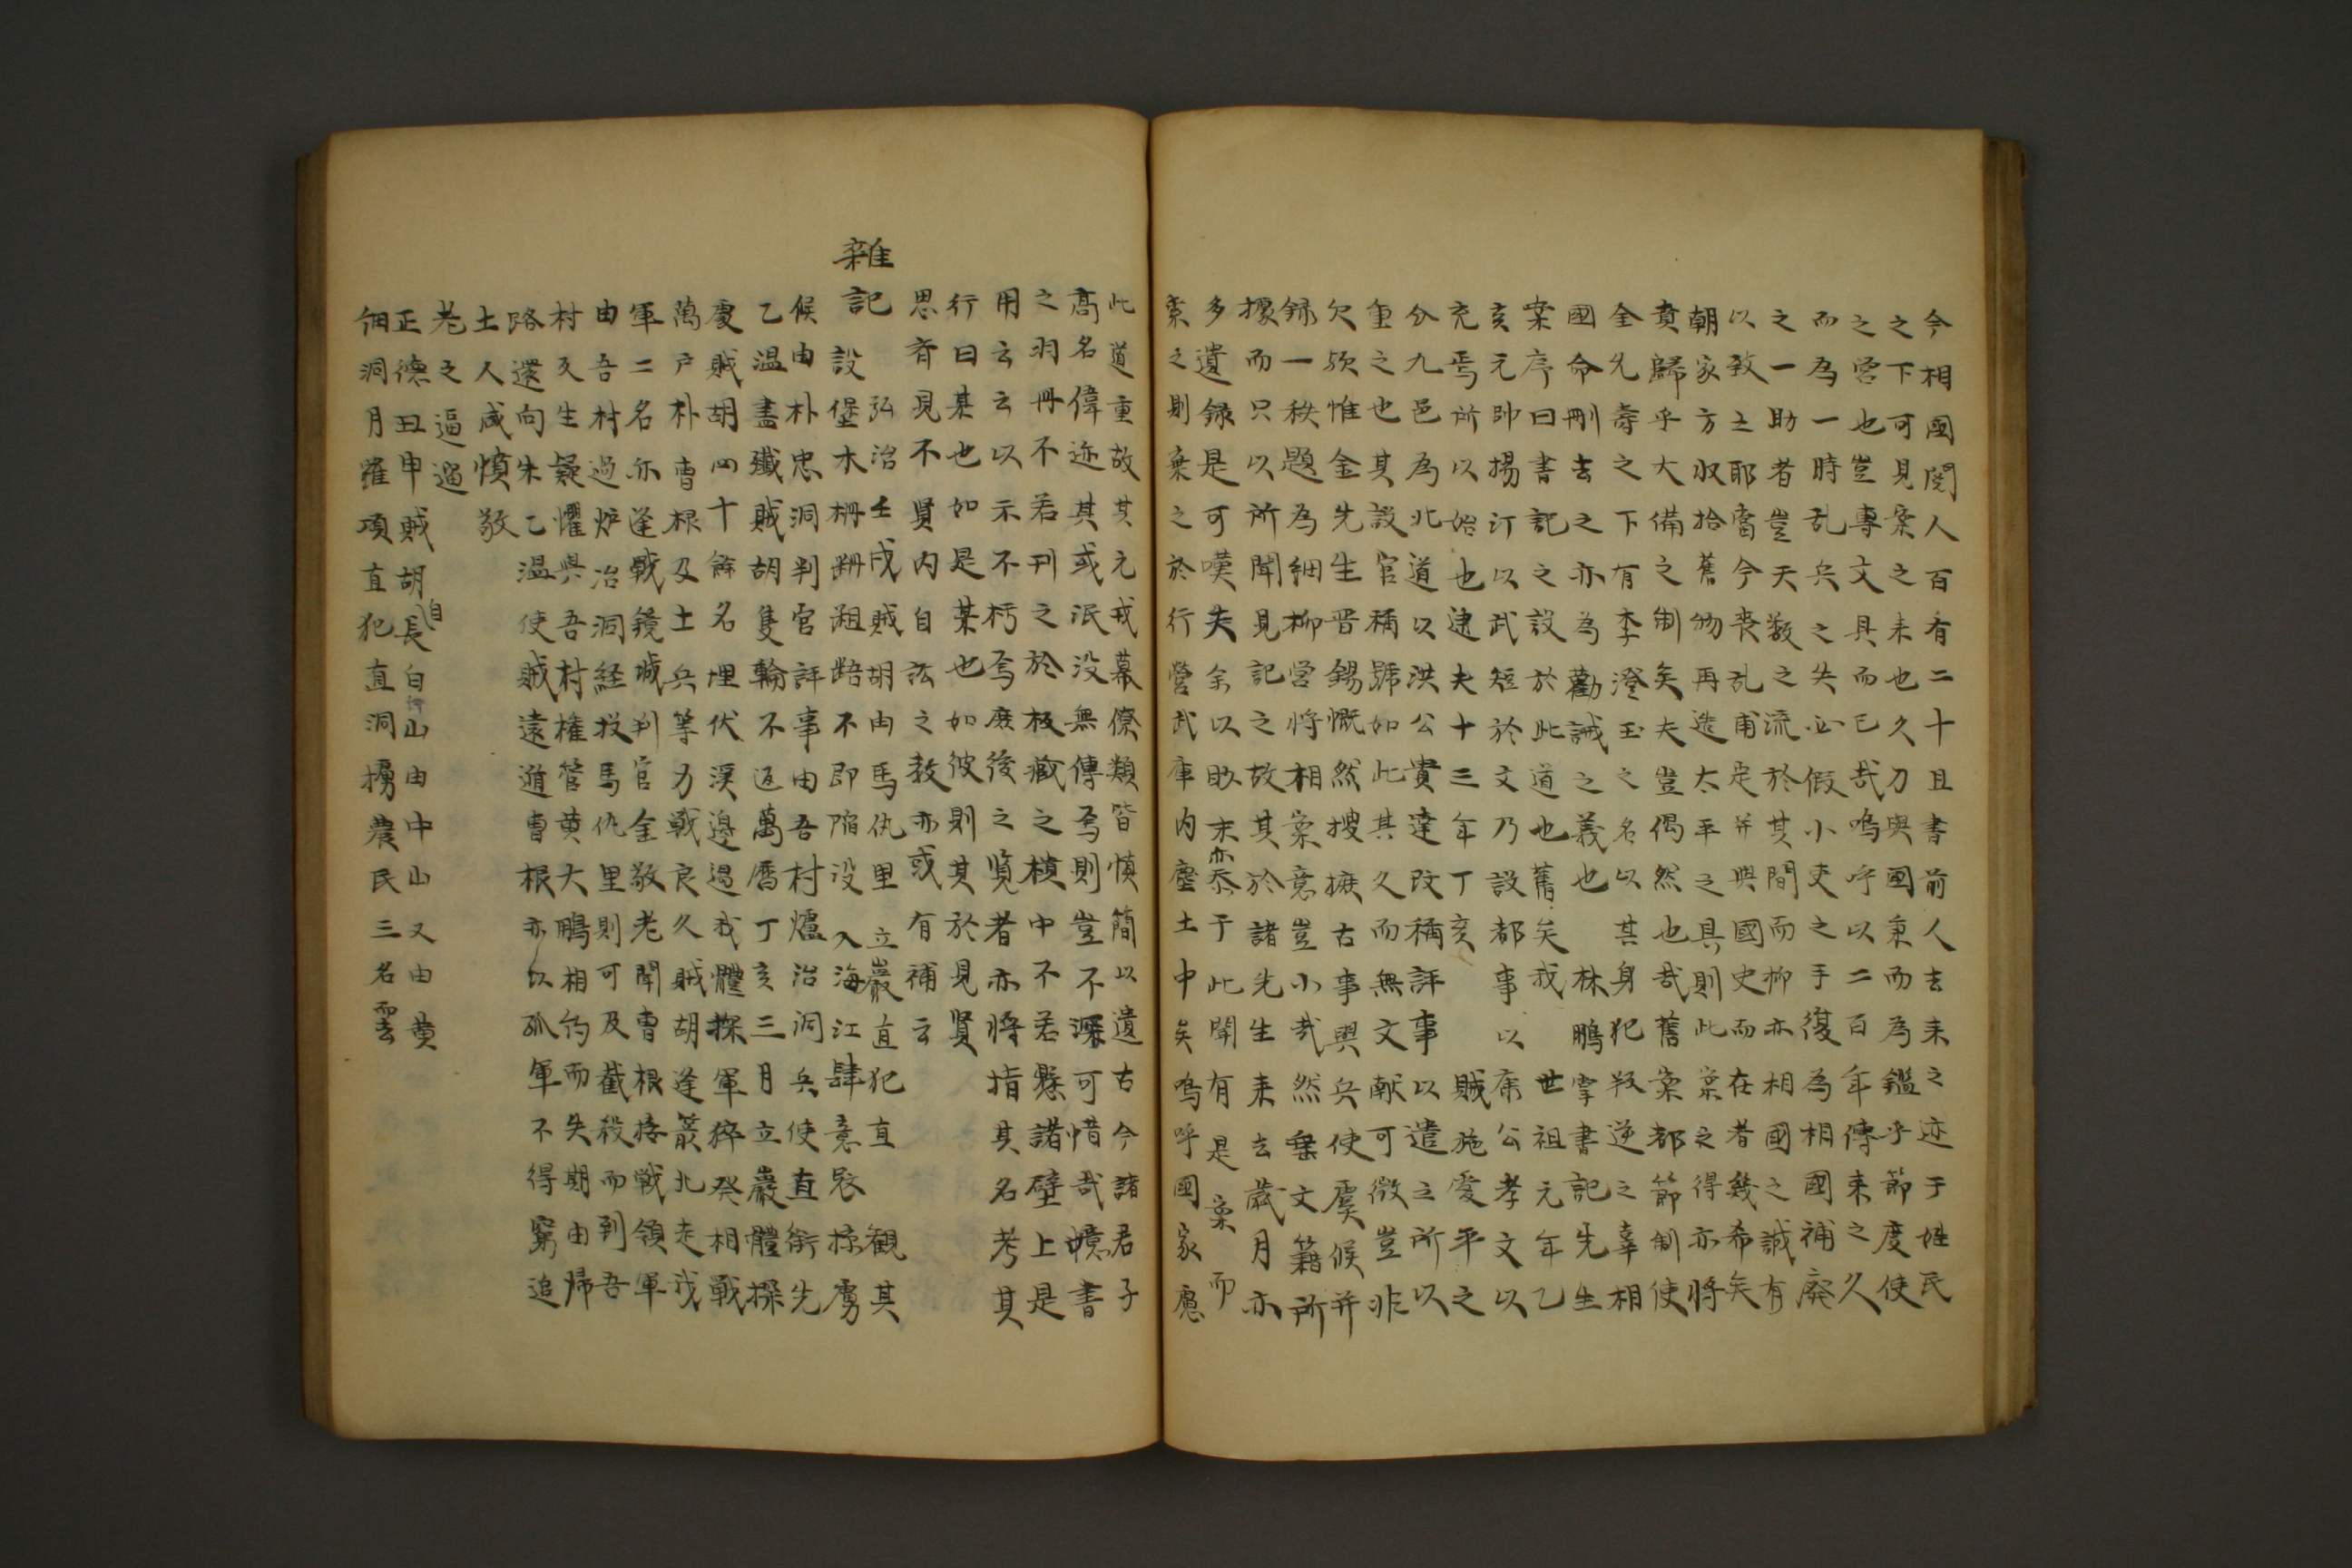 今相國閱人百有二十且書前人去來之迹于姓民
之下可見案之未也久刀與國秉而為鑑乎節度使
之営也豈專文具而已哉嗚呼以二百年傳來之久
而為一時乱兵之失必假小吏之手復為相國補廢
之一助者豈天数之流於其間而抑亦相國之誠有
以致之耶當今丧乱甫定并與國史而在者幾希矣
朝家方収拾舊物再造太平之具則此案之得亦將
賁歸乎大備之制矣夫豈偶然也哉舊案都節制使
全允壽之下有李澄玉之名以其身犯叛逆之辜相
國命刪去之亦為勸誡之義也 林鵬掌書記先生
案序曰書記之設於此道也舊矣 我世祖元年乙
亥元帥揚汀以武短於文乃設都事以康公孝文以
充焉所以始也逮夫十三年丁亥 賊施愛平之
分九邑為北道以洪公貴達改稱評事以遣之所以
重之也其設官稱號如此其久而無文献可徵豈非
欠歟惟金先生晋錫慨然搜摭古事與兵使虞候并
録一秩題為細柳営將相案意豈小哉然案文籍所
據而只以所聞見記之故其於諸先生来去歲月亦
多遺録是可嘆失余以眇末亦忝于此聞有是案而
索之則棄之於行營武庫内塵土中矣嗚呼國家慮
此道重故其元戎幕僚類皆慎簡以遺古今諸君子
高名偉迹其或泯没無傳焉則豈不深可惜哉噫書
之羽冊不若刊之於板藏之樻中不若懸諸壁上是
用云云以示不朽焉庶後之覧者亦將指其名考其
行曰某也如是某也如彼則其於見賢
思齊見不賢内自訟之教亦或有補云
雜
記 弘治壬戌賊胡由馬仇里 立巖直犯直 觀其
設堡木柵跚跙踣不即陥没入海江肆意畏掠虜
候由朴忠洞判官評事由吾村爐冶洞兵使直衝先
乙温盡殲賊胡隻輪不返萬曆丁亥三月立巖體探
處賊胡四十餘名埋伏渓邊過我體探軍猝癸相戰
萬户朴曺根及土兵等力戰良久賊胡逢箭北走我
軍二名亦逢戰鏡城判官金敬老聞曺根接戦領軍
由吾村過炉冶洞経投馬仇里則可及截殺而到吾
村反生疑懼與吾村権管黄大鵬相約而失期由帰
路還向朱乙温使賊遠遁曺根亦以孤軍不得窮追
土人咸憤敬
老之逗遛
正德丑申賊胡自長白山由中山又由黄
細洞月羅項直犯直洞擄農民三名雲